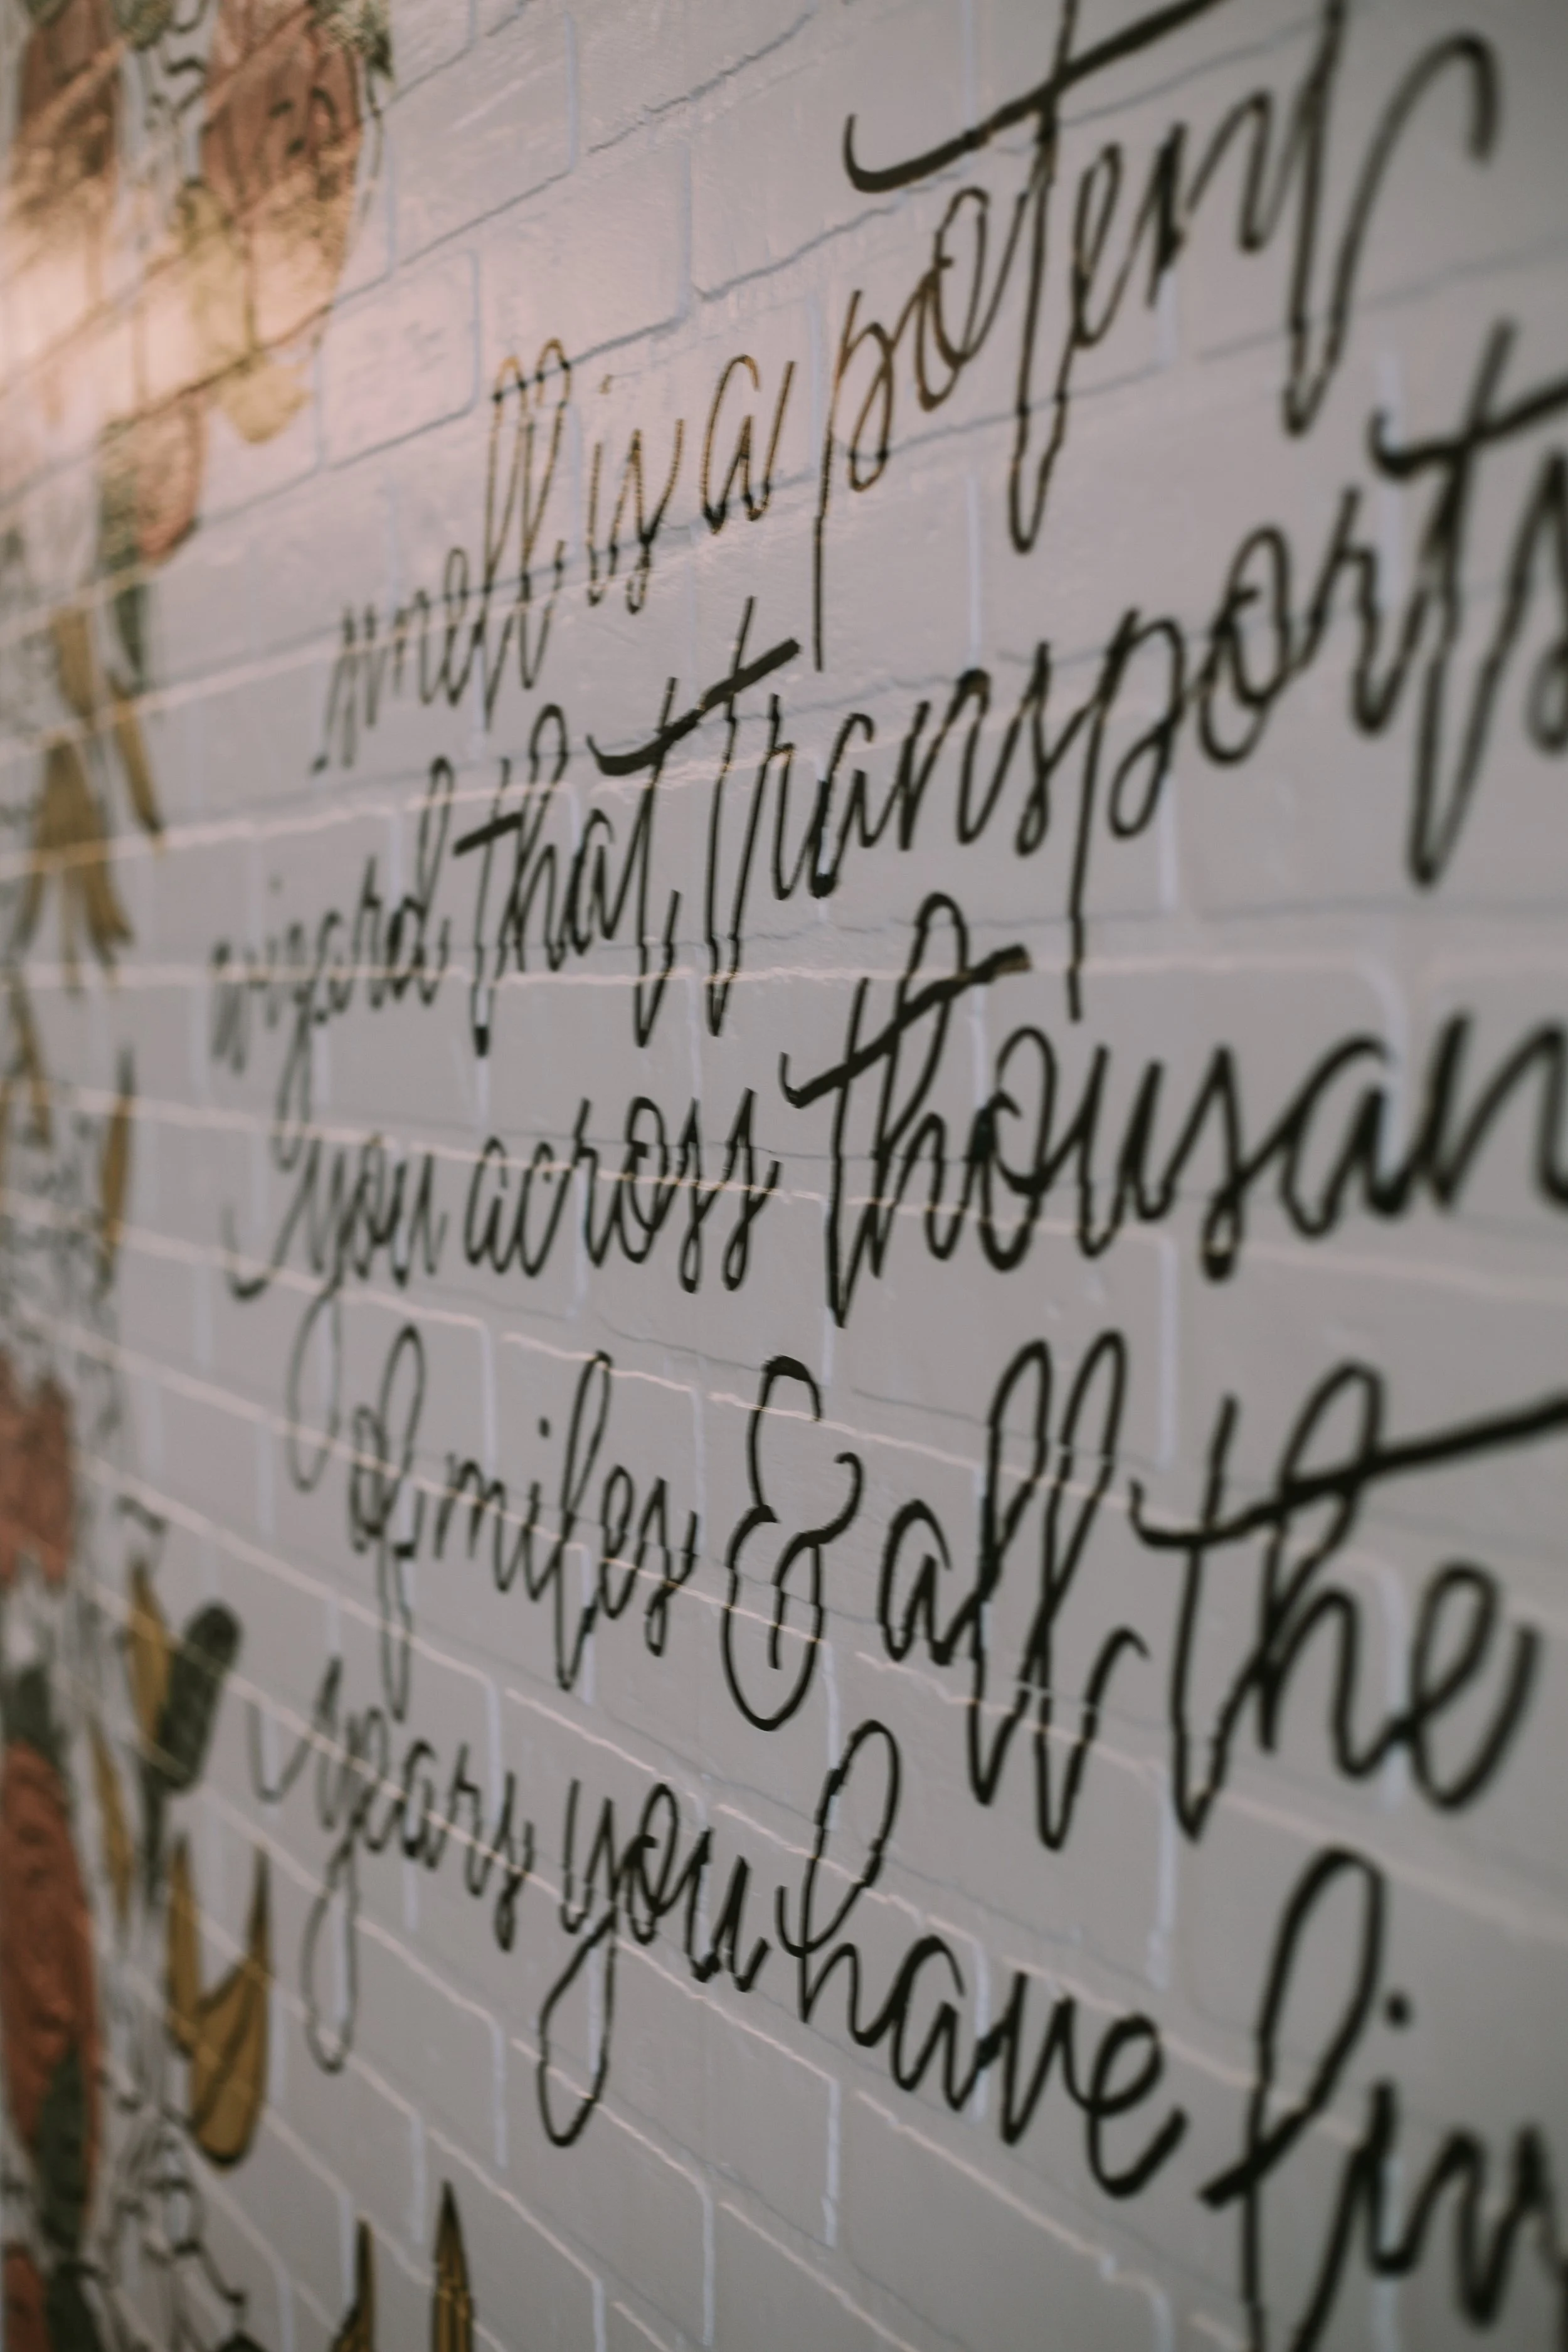 smell is a potent
wizard that transports
you across thousan
of miles & all the
years you have liv